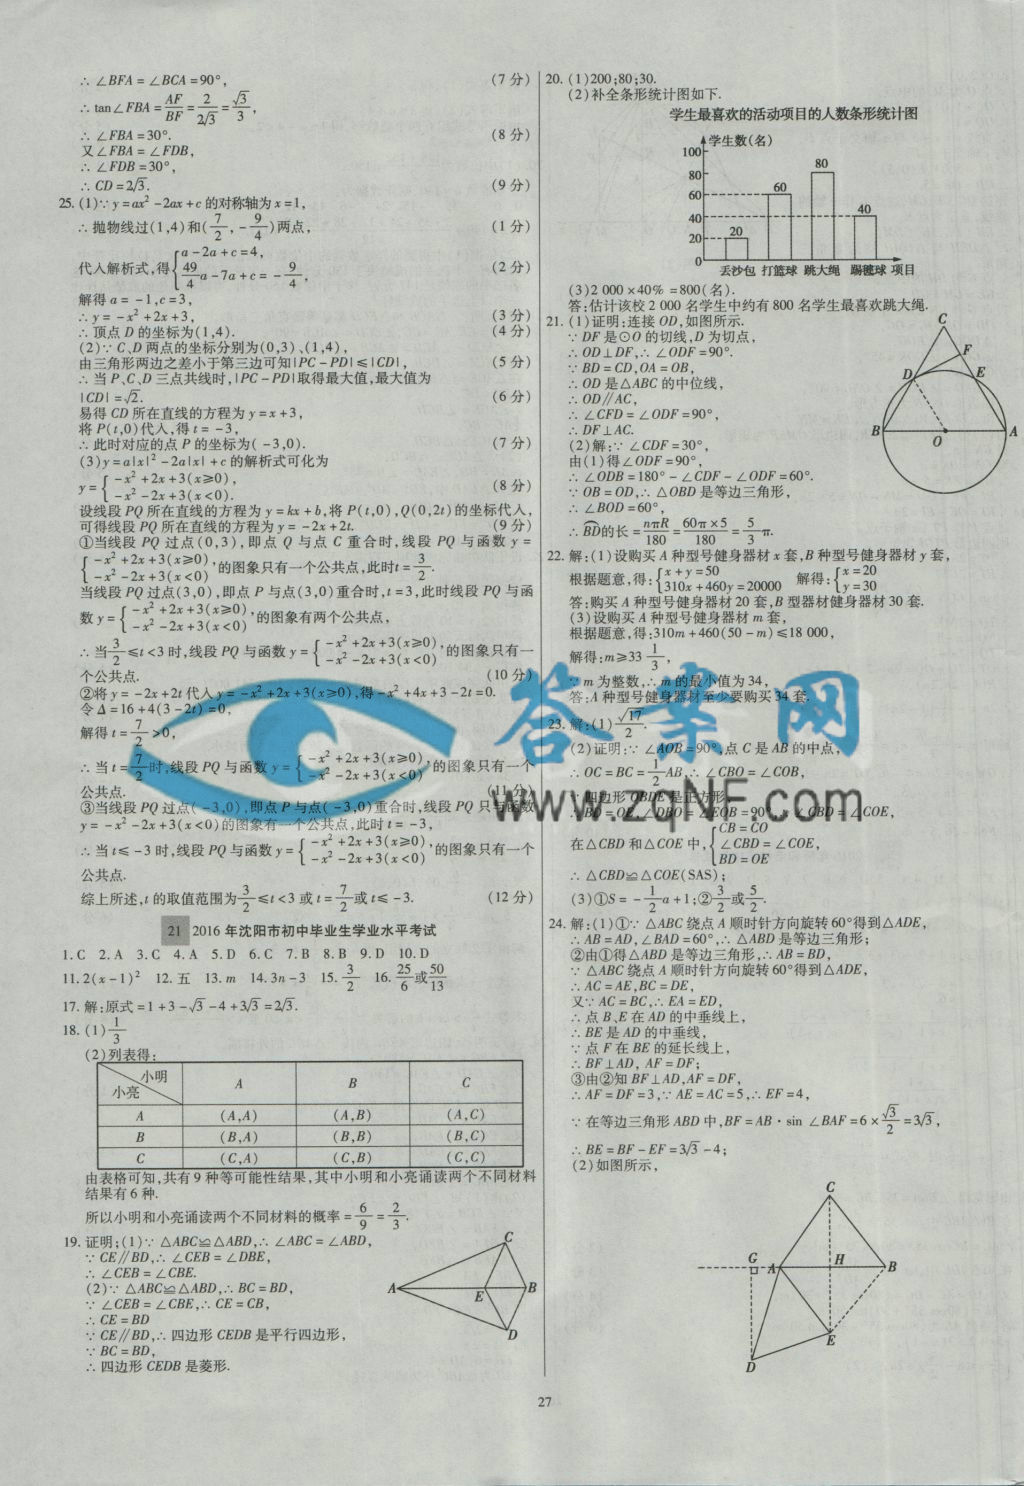 ∴ ∠BFA = ∠BCA = 90°, (7 分)
∴ tan∠FBA = AF/BF = 2/2√3 = √3/3,
∴ ∠FBA = 30°. (8 分)
又∠FBA = ∠FDB,
∴ ∠FDB = 30°,
∴ CD = 2√3. (9 分)
25. (1)∵ y = ax² - 2ax + c 的对称轴为 x = 1,
∴ 抛物线过(1,4)和(7/2, -9/4)两点, (1 分)
代入解析式,得{a - 2a + c = 4, 49/4a - 7a + c = -9/4, (2 分)
解得 a = -1,c = 3,
∴ y = -x² + 2x + 3, (3 分)
∴ 顶点 D 的坐标为(1,4). (4 分)
(2)∵ C、D 两点的坐标分别为(0,3)、(1,4),
由三角形两边之差小于第三边可知|PC - PD| ≤ |CD|, (5 分)
∴ 当 P、C、D 三点共线时,|PC - PD|取得最大值,最大值为
|CD| = √2. (6 分)
易得 CD 所在直线的方程为 y = x + 3,
将 P(t,0)代入,得 t = -3,
∴ 此时对应的点 P 的坐标为( -3,0). (7 分)
(3)y = a|x|² - 2a|x| + c 的解析式可化为
y = {-x² + 2x + 3(x≥0), -x² - 2x + 3(x<0). (8 分)
设线段 PQ 所在直线的方程为 y = kx + b,将 P(t,0),Q(0,2t)的坐标代入,
可得线段 PQ 所在直线的方程为 y = -2x + 2t. (9 分)
①当线段 PQ 过点(0,3),即点 Q 与点 C 重合时,线段 PQ 与函数 y =
{-x² + 2x + 3(x≥0), -x² - 2x + 3(x<0) 的图象只有一个公共点,此时 t = 3/2.
当线段 PQ 过点(3,0),即点 P 与点(3,0)重合时,t = 3,此时线段 PQ 与函
数 y = {-x² + 2x + 3(x≥0), -x² - 2x + 3(x<0) 的图象有两个公共点,
∴ 当 3/2 ≤ t < 3 时,线段 PQ 与函数 y = {-x² + 2x + 3(x≥0), -x² - 2x + 3(x<0) 的图象只有一
个公共点. (10 分)
②将 y = -2x + 2t 代入 y = -x² + 2x + 3(x≥0),得 -x² + 4x + 3 - 2t = 0.
令 Δ = 16 + 4(3 - 2t) = 0,
解得 t = 7/2 > 0,
∴ 当 t = 7/2 时,线段 PQ 与函数 y = {-x² + 2x + 3(x≥0), -x² - 2x + 3(x<0) 的图象只有一个
公共点. (11 分)
③当线段 PQ 过点( -3,0),即点 P 与点( -3,0)重合时,线段 PQ 只与函数
y = -x² - 2x + 3(x<0)的图象有一个公共点,此时 t = -3,
∴ 当 t ≤ -3 时,线段 PQ 与函数 y = {-x² + 2x + 3(x≥0), -x² - 2x + 3(x<0) 的图象只有一个
公共点.
综上所述,t 的取值范围为 3/2 ≤ t < 3 或 t = 7/2 或 t ≤ -3. (12 分)
21 2016 年沈阳市初中毕业生学业水平考试
1. C 2. A 3. C 4. A 5. D 6. C 7. B 8. B 9. D 10. D
11. 2(x - 1)² 12. 五 13. m 14. 3n - 3 15. 3/2 16. 25/6 或 50/13
17. 解:原式 = 1 + 3 - √3 - 4 + 3√3 = 2√3.
18. (1) 1/3
(2)列表得:
小明 小亮 A B C
A (A,A) (A,B) (A,C)
B (B,A) (B,B) (B,C)
C (C,A) (C,B) (C,C)
由表格可知,共有 9 种等可能性结果,其中小明和小亮诵读两个不同材料
结果有 6 种.
所以小明和小亮诵读两个不同材料的概率 = 6/9 = 2/3.
19. 证明:(1)∵ △ABC≌△ABD,∴ ∠ABC = ∠ABD,
∵ CE∥BD,∴ ∠CEB = ∠DBE,
∴ ∠CEB = ∠CBE.
(2)∵ △ABC≌△ABD,∴ BC = BD,
∵ ∠CEB = ∠CBE,∴ CE = CB,
∴ CE = BD
∵ CE∥BD,∴ 四边形 CEDB 是平行四边形,
∵ BC = BD,
∴ 四边形 CEDB 是菱形.
A C E B D
20. (1)200;80;30.
(2)补全条形统计图如下.
学生最喜欢的活动项目的人数条形统计图
学生数(名)
100
80 80
60 60
40 40
20 20
0
丢沙包 打篮球 跳大绳 踢毽球 项目
(3)2 000 × 40% = 800(名).
答:估计该校 2 000 名学生中约有 800 名学生最喜欢跳大绳.
21. (1)证明:连接 OD,如图所示.
∵ DF 是⊙O 的切线,D 为切点,
∴ OD⊥DF,∴ ∠ODF = 90°.
∵ BD = CD,OA = OB,
∴ OD 是△ABC 的中位线,
∴ OD∥AC,
∴ ∠CFD = ∠ODF = 90°,
∴ DF⊥AC.
(2)解:∵ ∠CDF = 30°,
由(1)得∠ODF = 90°,
∴ ∠ODB = 180° - ∠CDF - ∠ODF = 60°.
∵ OB = OD,∴ △OBD 是等边三角形,
∴ ∠BOD = 60°,
∴ BD的长 = nπR/180 = 60π×5/180 = 5/3 π.
C F D E B O A
22. 解:(1)设购买 A 种型号健身器材 x 套,B 种型号健身器材 y 套,
根据题意,得:{x + y = 50 310x + 460y = 20000 解得:{x = 20 y = 30
答:购买 A 种型号健身器材 20 套,B 型器材健身器材 30 套.
(3)设购买 A 种型号健身器材 m 套,
根据题意,得:310m + 460(50 - m) ≤ 18 000,
解得:m ≥ 33 1/3,
∵ m 为整数,∴ m 的最小值为 34,
答:A 种型号健身器材至少要购买 34 套.
23. 解:(1) √17/2.
(2)证明:∵ ∠AOB = 90°,点 C 是 AB 的中点,
∴ OC = BC = 1/2 AB,∴ ∠CBO = ∠COB,
∵ 四边形 OBDE 是正方形,
∴ BD = OE,∠DBO = ∠EOB = 90°,∴ ∠CBD = ∠COE,
在△CBD 和△COE 中,{CB = CO ∠CBD = ∠COE, BD = OE
∴ △CBD≌△COE(SAS);
(3)①S = -1/2 a + 1;②3/2 或 5/2.
24. 解:(1)①∵ △ABC 绕点 A 顺时针方向旋转 60°得到△ADE,
∴ AB = AD,∠BAD = 60°,∴ △ABD 是等边三角形;
②由①得△ABD 是等边三角形,∴ AB = BD,
∵ △ABC 绕点 A 顺时针方向旋转 60°得到△ADE,
∴ AC = AE,BC = DE,
又∵ AC = BC,∴ EA = ED,
∴ 点 B、E 在 AD 的中垂线上,
∴ BE 是 AD 的中垂线,
∵ 点 F 在 BE 的延长线上,
∴ BF⊥AD, AF = DF;
③由②知 BF⊥AD,AF = DF,
∴ AF = DF = 3,∵ AE = AC = 5,∴ EF = 4,
∵ 在等边三角形 ABD 中,BF = AB · sin ∠BAF = 6 × √3/2 = 3√3,
∴ BE = BF - EF = 3√3 - 4;
(2)如图所示,
C G A H B E D
27
答案网
www.zqNF.com